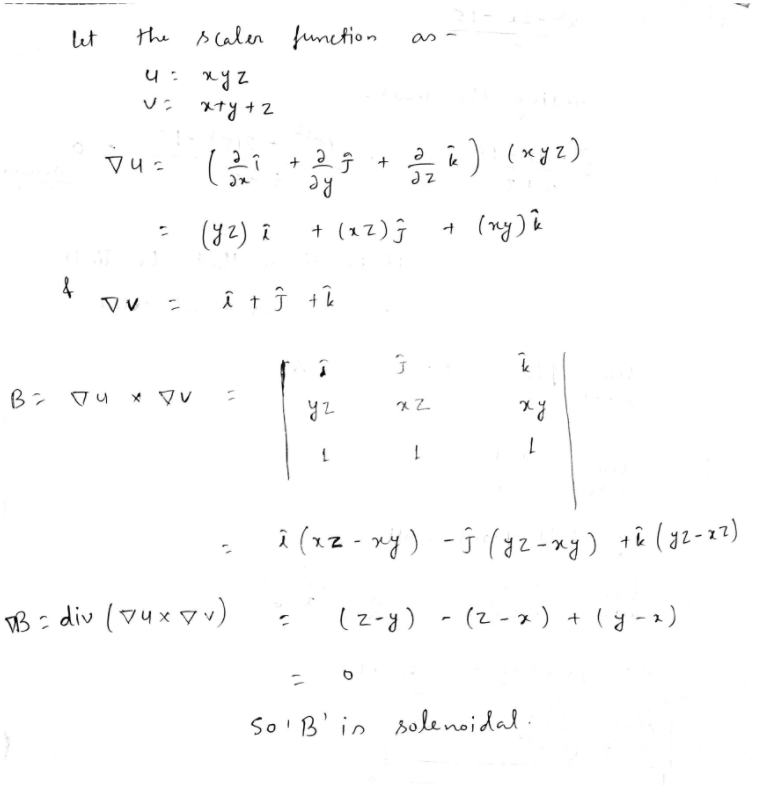 let the scaler function as -
u = xyz
v = x+y+z
∇u = (∂/∂x î + ∂/∂y ĵ + ∂/∂z k̂) (xyz)
= (yz) î + (xz) ĵ + (xy) k̂
& ∇v = î + ĵ + k̂
B = ∇u × ∇v = | î ĵ k̂ |
yz xz xy
1 1 1
= î (xz - xy) - ĵ (yz - xy) + k̂ (yz - xz)
∇B = div (∇u × ∇v) = (z-y) - (z-x) + (y-x)
= 0
So 'B' is solenoidal.